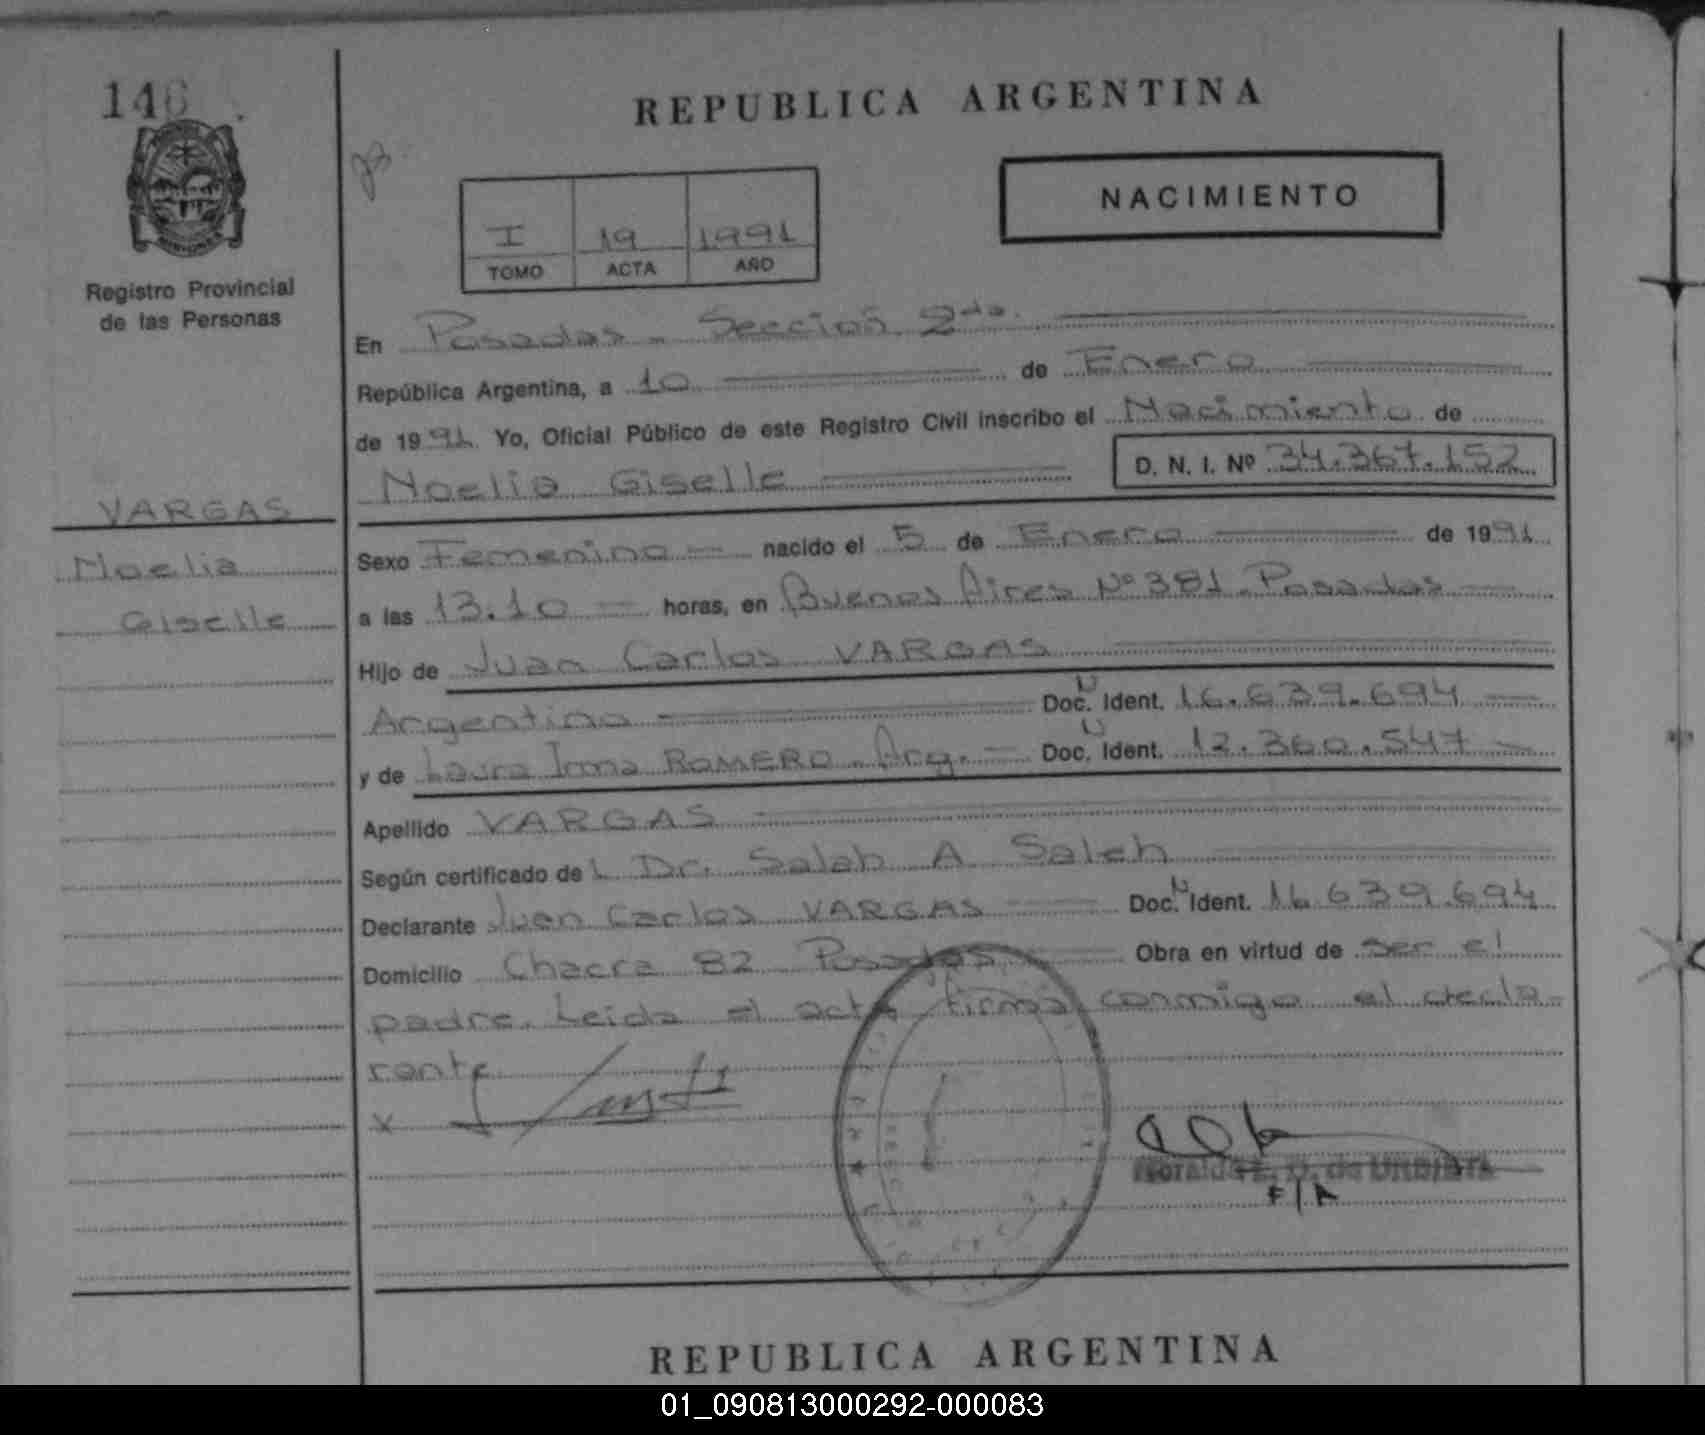 146
REPUBLICA ARGENTINA
NACIMIENTO
I 19 1991
TOMO ACTA AÑO
Registro Provincial
de las Personas
En Posadas - Sección 2da.
República Argentina, a 10 de Enero
de 1991. Yo, Oficial Público de este Registro Civil inscribo el Nacimiento de
Noelia Giselle D. N. I. Nº 34.367.152
VARGAS
Noelia
Giselle
Sexo Femenino nacido el 5 de Enero de 1991
a las 13.10 horas, en Buenos Aires Nº 381 - Posadas
Hijo de Juan Carlos VARGAS
Argentino Doc. N Ident. 16.639.694
y de Laura Irma ROMERO - Arg. Doc. N Ident. 12.360.547
Apellido VARGAS
Según certificado del Dr. Salah A Saleh
Declarante Juan Carlos VARGAS Doc. N Ident. 16.639.694
Domicilio Chacra 82 Posadas Obra en virtud de ser el
padre. Leida el acta firma conmigo el decla-
rante
x
de URBIETA
F/A
REPUBLICA ARGENTINA
01_090813000292-000083